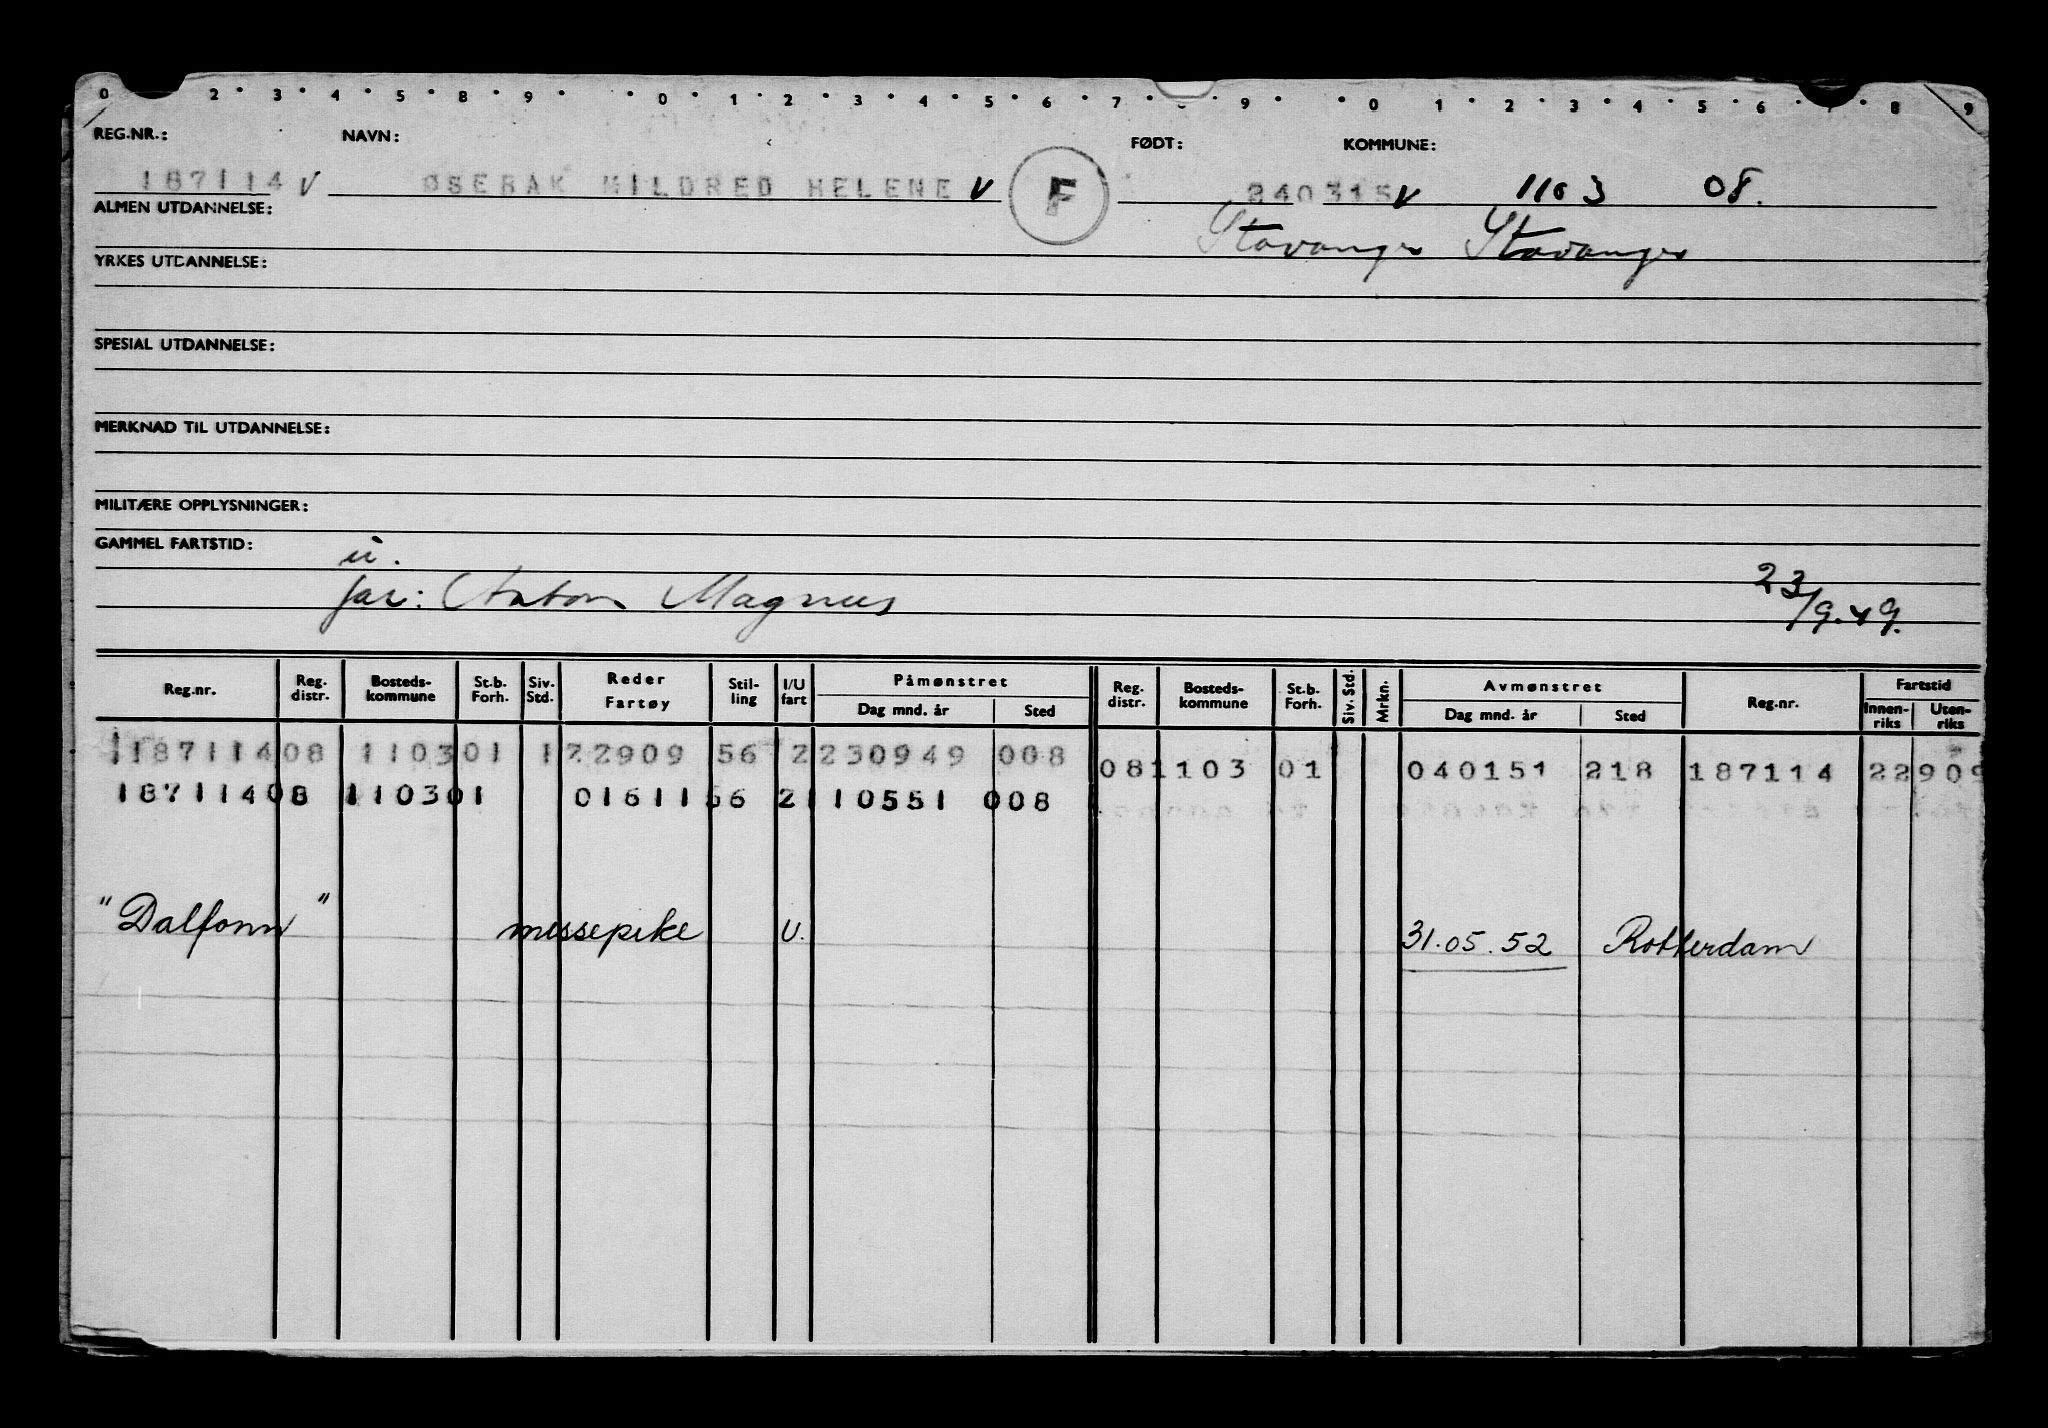 0 2 • 3 • 4 • 5 • 8 • 9 • • 0 • 1 • 2 • 3 • 4 • 5 • 6 • 7 • 9 • • 0 1 • 2 • 3 • 4 • 5 • 6 • 7 • 8 9
REG.NR.: NAVN: FØDT: KOMMUNE:
187114 V ØSEBAK MILDRED HELENE V F 240315 V 1103 08.
ALMEN UTDANNELSE: Stavanger Stavanger
YRKES UTDANNELSE:
SPESIAL UTDANNELSE:
MERKNAD TIL UTDANNELSE:
MILITÆRE OPPLYSNINGER:
GAMMEL FARTSTID:
far: Anton Magnus 23/9.49.
Reg.nr. Reg. distr. Bosteds-kommune St.b. Forh. Siv. Std. Reder Fartøy Stil-ling I/U fart Påmønstret Dag mnd. år Sted Reg. distr. Bosteds-kommune St.b. Forh. Siv. Std. Mrkn. Avmønstret Dag mnd. år Sted Reg.nr. Fartstid Innen-riks Uten-riks
187114 08 1103 01 1 22909 56 2 230949 008 08 1103 01 040151 218 187114 22909
187114 08 1103 01 01611 56 2 110551 008
"Dalfonn" messepike U. 31.05.52 Rotterdam